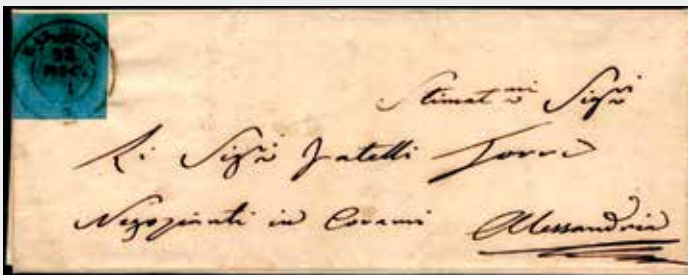 Stimat.mi Sig.ri
Li Sig.ri Fratelli Torre
Negozianti in Corami Alessandria